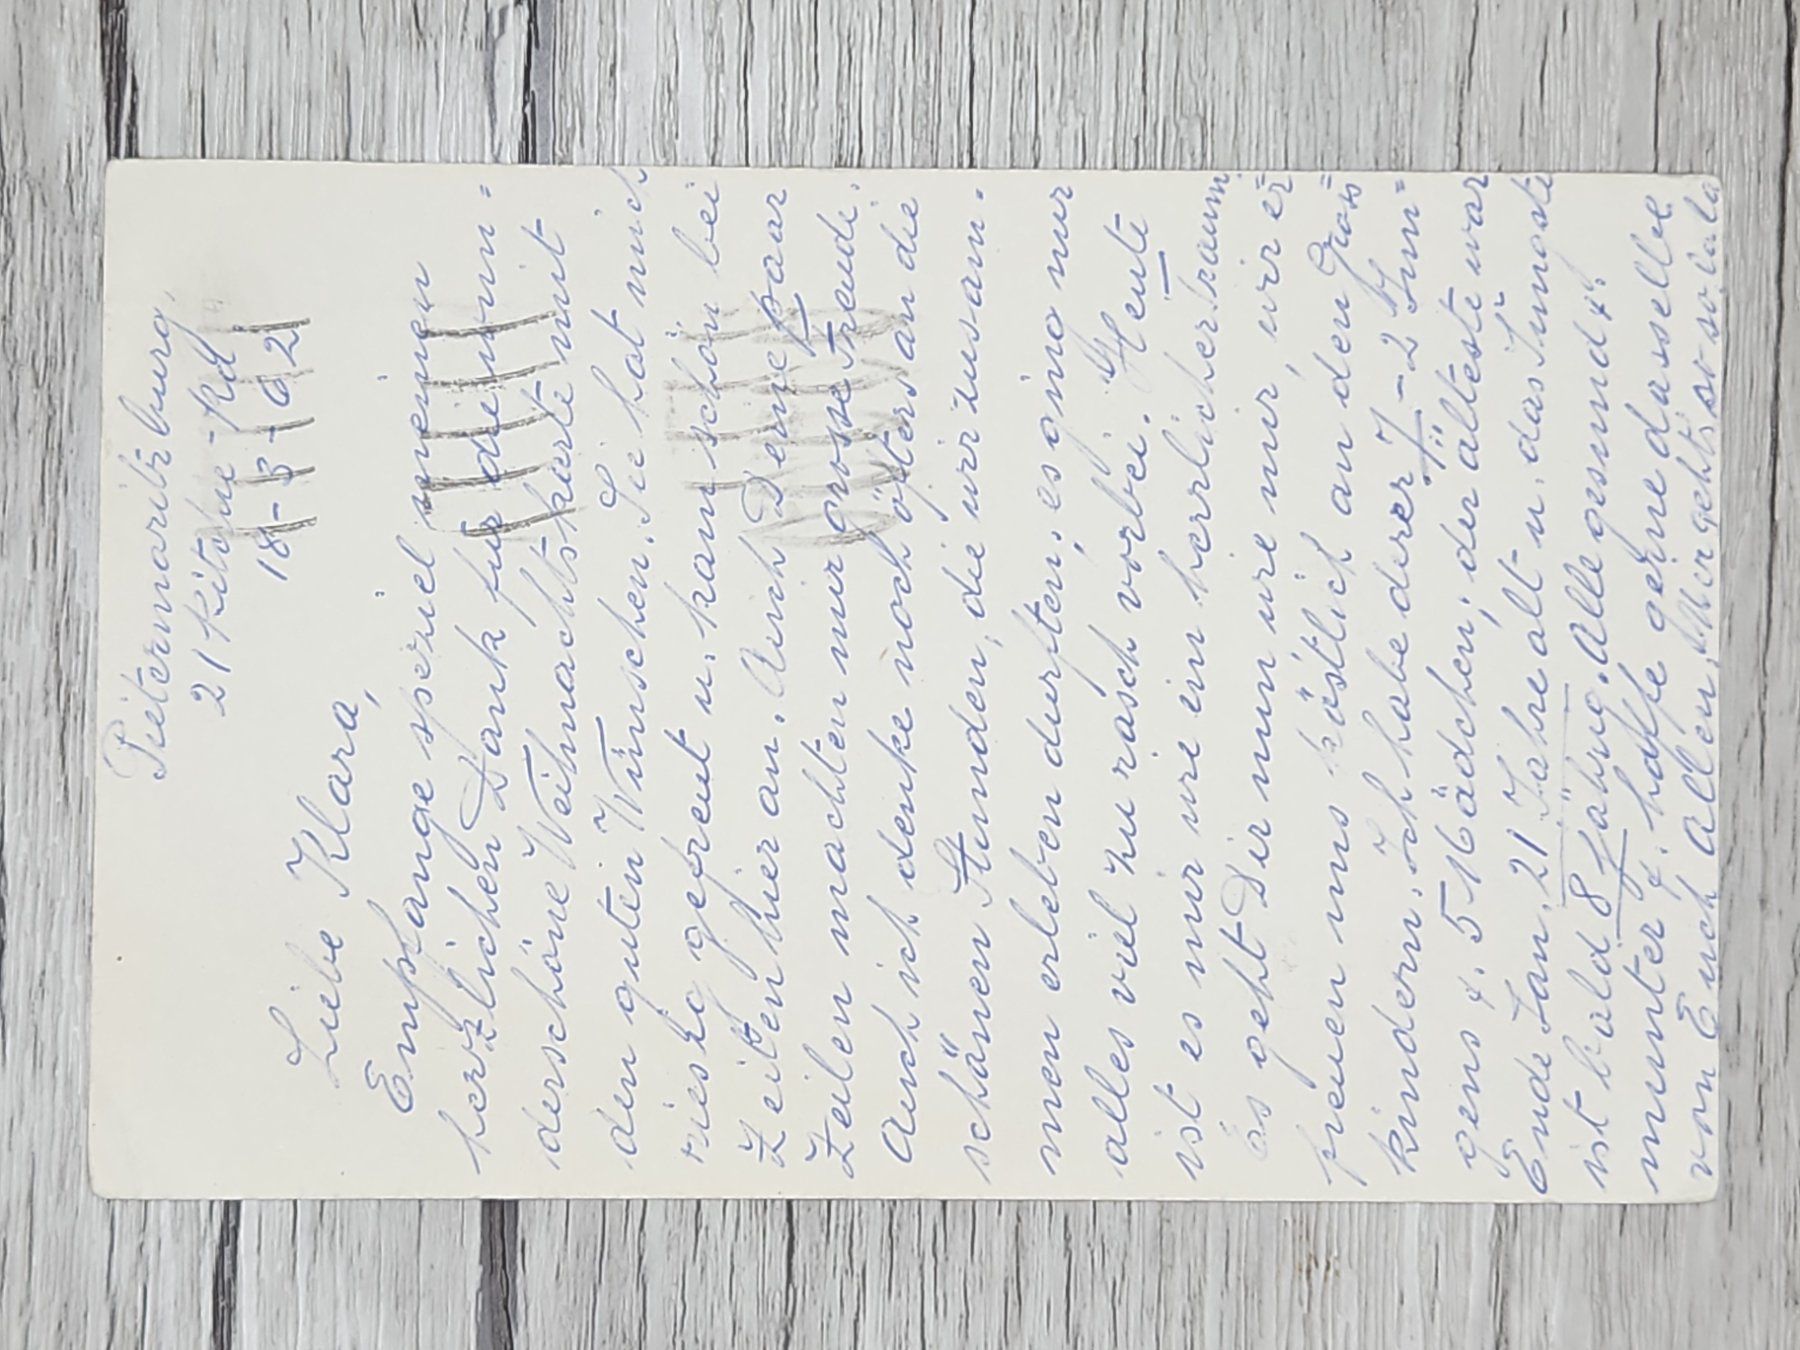 Pietermaritzburg,
21 Kitchie - Rd
18 - 3 - 62
Liebe Klara,
Empfange speziel meinen
herzlichen Dank für die wun=
derschöne Weihnachtskarte mit
den guten Wünschen. Sie hat mich
riesig gefreut u. kam schön bei
Zeiten hier an. Auch Deine paar
Zeilen machten mir grosse Freude.
Auch ich denke noch öfters an die
schönen Stunden, die wir zusam.
men erleben durften, es ging nur
alles viel zu rasch vorbei. Heute
ist es mir wie ein herrlicher traum.
Es geht Dir nun wie mir, wir er=
freuen uns köstlich an den Gross=
kindern. Ich habe derer 7 - 2 Jun=
gens & 5 Mädchen, der älteste war
Ende Jan. 21 Jahre alt u. das Jüngste
ist bald 8 jährig. Alle gesund &
munter & hoffe gerne dasselbe
von Euch allen. Mir gehts so so la la